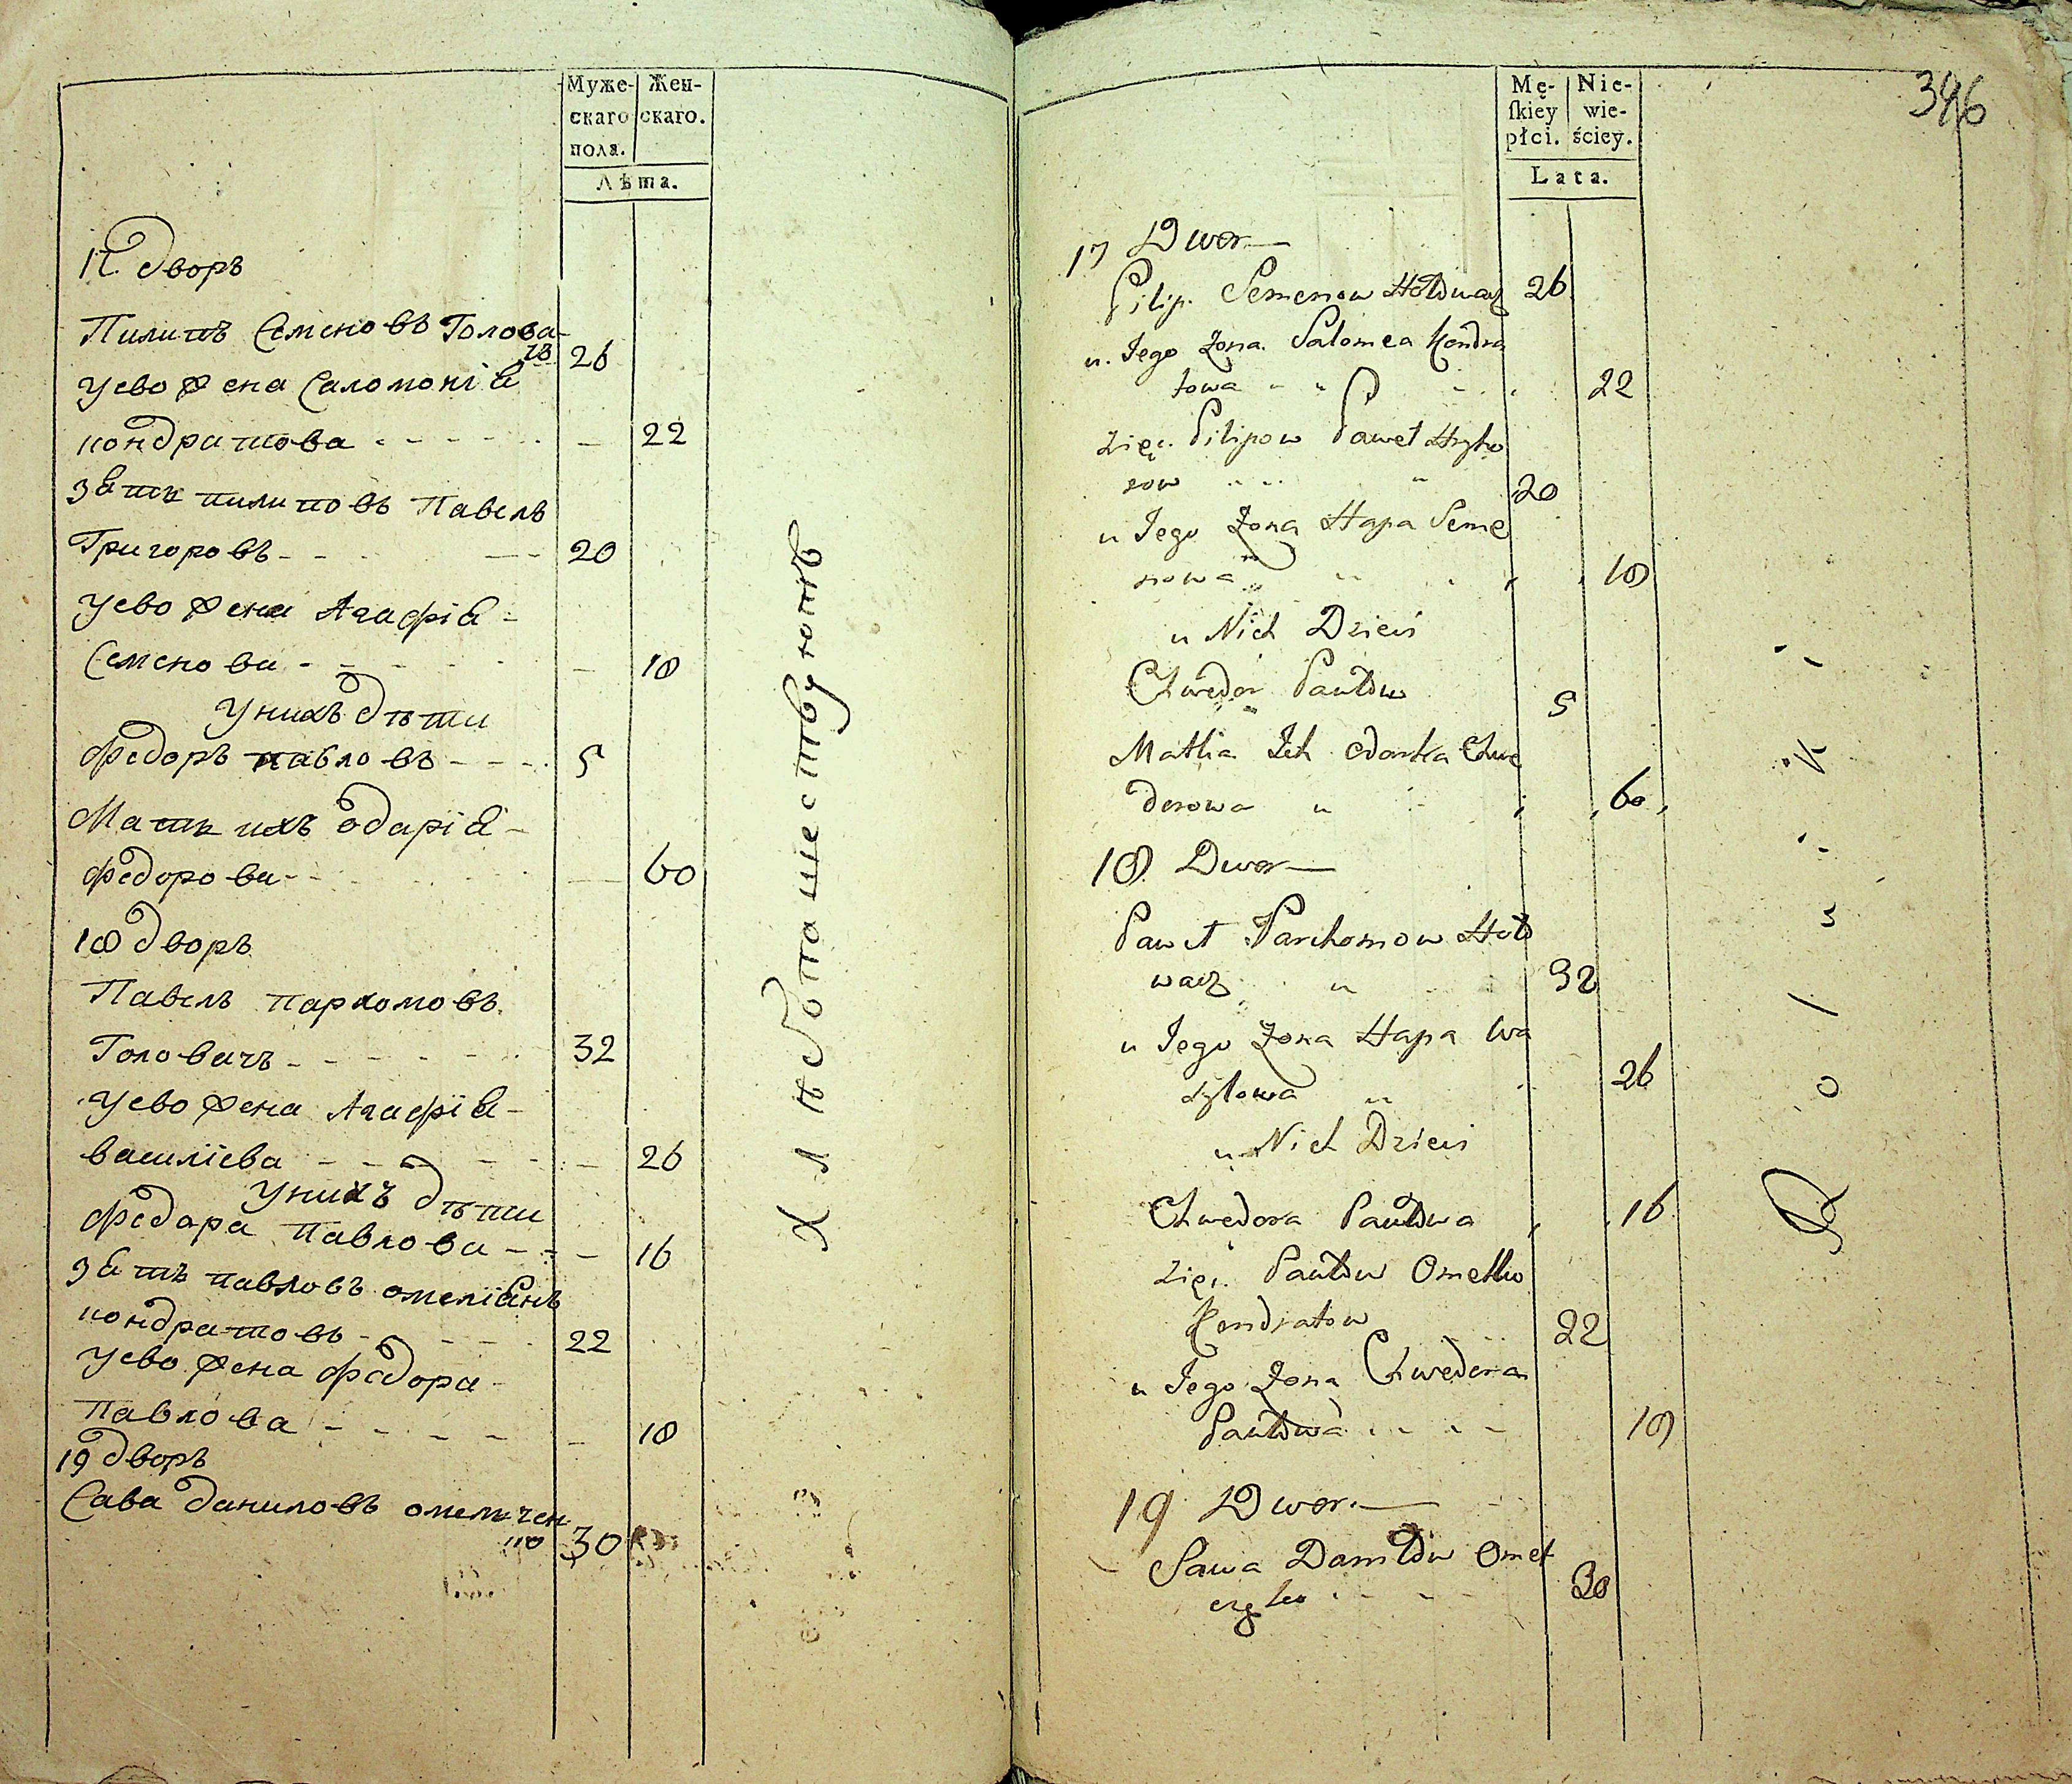 Муже-
скаго
пола.
Жен-
скаго.
Лѣта.
17 дворъ
Пилипъ Семеновъ Голова-
чъ 26
Уево жена Саломоніѧ
кондратова - - - - - - 22
Зѧть пилиповъ Павелъ
Григоровъ - - - 20
Уево жена Агафіѧ -
Семенова - - - - - 18
Унихъ дѣти
Федоръ павловъ - - - 5
Мать ихъ одаріѧ -
Федорова - - - 60
18 дворъ
Павелъ пархомовъ
Головачъ - - - - - 32
Уево жена Агафіѧ -
василіева - - - - - 26
Унихъ дѣти
Федора Павлова - - - 16
Зѧть павловъ омелiѧнъ
кондратовъ - - - - 22
Уево жена Федора -
Павлова - - - - - 18
19 дворъ
Сава даниловъ омельчен
ко 30
Хлѣбопашествуютъ
346
Mę-
ſkiey
płci.
Nie-
wie-
ściey.
Lata.
17 Dwor
Pilip Semenow Hołowacz 26
u Jego Żona Salomea Kondra
towa 22
Zięć Pilipow Paweł Hryho
row 20
u Jego Żona Hapa Seme
nowa 18
u Nich Dzieci
Chwedor Pawłow 5
Matka Ich Odarka Chwe
derowa 60
18 Dwor
Paweł Parchomow Hoło
wacz 32
u Jego Żona Hapa Wa
sylowa 26
u Nich Dzieci
Chwedora Pawłowa 16
Zięć Pawłow Omelko
Kondratow 22
u Jego Żona Chwedora
Pawłowa 18
19 Dwor
Sawa Daniłow Omel
częko 30